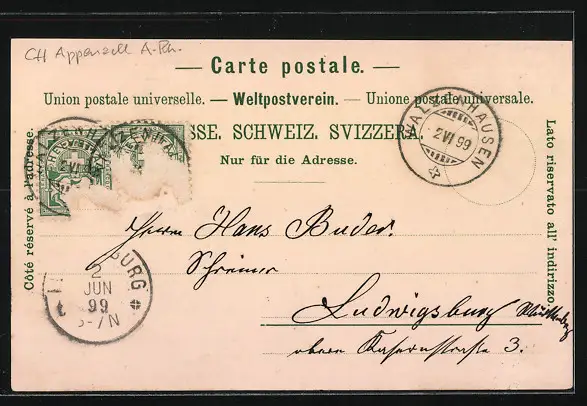 CH Appenzell A.-Rh.
— Carte postale. —
Union postale universelle. — Weltpostverein. — Unione postale universale.
SSE. SCHWEIZ. SVIZZERA.
Nur für die Adresse.
Côté réservé à l'adresse.
Lato riservato all' indirizzo.
WALZENHAUSEN
2 VI 99
WALZENHA
2 VI
ZENHA
BURG
2
JUN
99
-7N
Herrn Hans Buder.
Schreiner
Ludwigsburg
obere Kasernstraße 3.